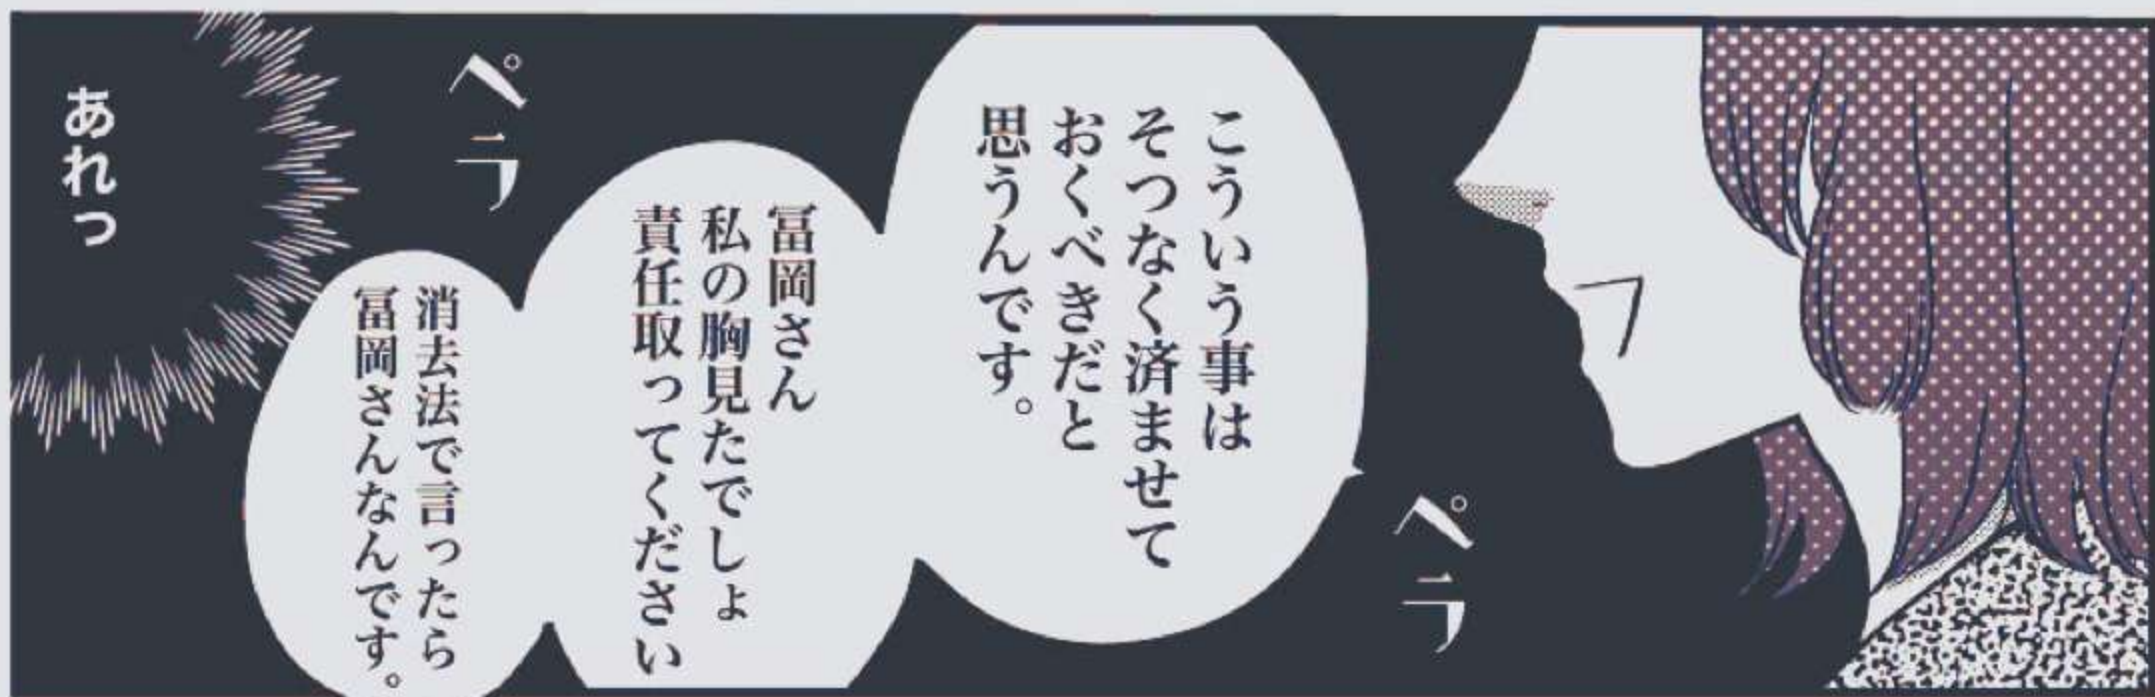 こういう事は
そつなく済ませて
おくべきだと
思うんです。
ペラ
冨岡さん
私の胸見たでしょ
責任取ってください
ペラ
消去法で言ったら
冨岡さんなんです。
あれっ